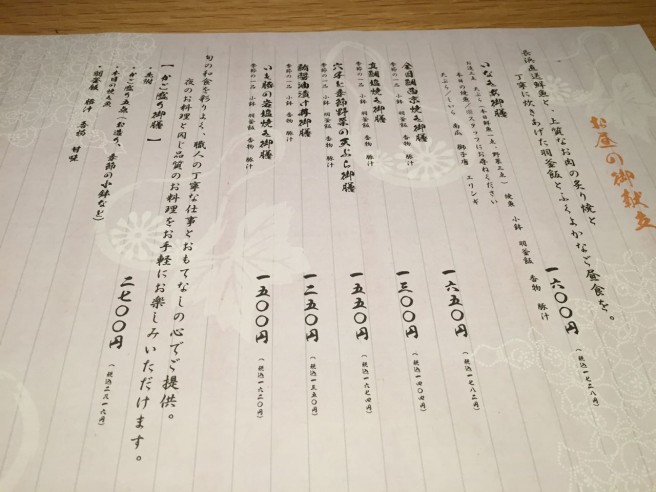 お昼の御献立
長浜直送鮮魚と、上質なお肉の炙り焼と
丁寧に炊きあげた羽釜飯とふくよかなご昼食を。
一六〇〇円
(税込一七二八円)
いなき炙御膳
小鉢 羽釜飯 香物 豚汁
一六五〇円
金目鯛西京焼き御膳
季節の一品 小鉢 羽釜飯 香物 豚汁
一三〇〇円
(税込一四〇四円)
真鯛塩焼き御膳
季節の一品 小鉢 羽釜飯 香物 豚汁
一五五〇円
(税込一六七四円)
穴子と季節野菜の天ぷら御膳
季節の一品 小鉢 羽釜飯 香物 豚汁
一二五〇円
(税込一三五〇円)
鮪醤油漬け丼御膳
季節の一品 小鉢 香物 豚汁
一五〇〇円
(税込一六二〇円)
いも豚の岩塩焼き御膳
季節の一品 小鉢 羽釜飯 香物 豚汁
旬の和食を彩りよく、職人の丁寧な仕事とおもてなしの心でご提供。
夜のお料理と同じ品質のお料理をお手軽にお楽しみいただけます。
【かご盛り御膳】
二七〇〇円
(税込二九一六円)
・先附
・かご盛り五点(お造り、季節の小鉢など)
・本日の焼魚
・羽釜飯 豚汁 香物 甘味